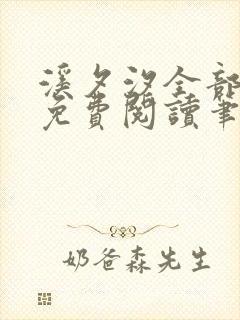 溪夕汐全部
免費閱讀筆
奶爸森先生